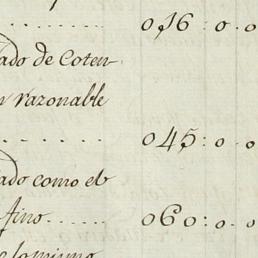 . . . . . . . . 016: 0. 0
ado de Coten-
n razonable
. . . . . . . . 045: 0. 0
ado como el
fino. . . . . . 060: 0. 0